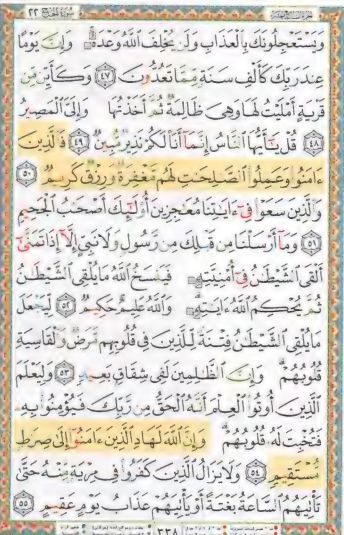 سورة الحج ٢٢
وَيَسْتَعْجِلُونَكَ بِالْعَذَابِ وَلَن يُخْلِفَ اللَّهُ وَعْدَهُۥ وَإِنَّ يَوْمًا
عِندَ رَبِّكَ كَأَلْفِ سَنَةٍ مِّمَّا تَعُدُّونَ ٤٧ وَكَأَيِّن مِّن
قَرْيَةٍ أَمْلَيْتُ لَهَا وَهِىَ ظَالِمَةٌ ثُمَّ أَخَذْتُهَا وَإِلَىَّ الْمَصِيرُ
٤٨ قُلْ يَٰٓأَيُّهَا النَّاسُ إِنَّمَآ أَنَا۠ لَكُمْ نَذِيرٌ مُّبِينٌ ٤٩ فَالَّذِينَ
ءَامَنُوا۟ وَعَمِلُوا۟ الصَّٰلِحَٰتِ لَهُم مَّغْفِرَةٌ وَرِزْقٌ كَرِيمٌ ٥٠
وَالَّذِينَ سَعَوْا۟ فِىٓ ءَايَٰتِنَا مُعَٰجِزِينَ أُو۟لَٰٓئِكَ أَصْحَٰبُ الْجَحِيمِ
٥١ وَمَآ أَرْسَلْنَا مِن قَبْلِكَ مِن رَّسُولٍ وَلَا نَبِىٍّ إِلَّآ إِذَا تَمَنَّىٰٓ
أَلْقَى الشَّيْطَٰنُ فِىٓ أُمْنِيَّتِهِۦ فَيَنسَخُ اللَّهُ مَا يُلْقِى الشَّيْطَٰنُ
ثُمَّ يُحْكِمُ اللَّهُ ءَايَٰتِهِۦ وَاللَّهُ عَلِيمٌ حَكِيمٌ ٥٢ لِّيَجْعَلَ
مَا يُلْقِى الشَّيْطَٰنُ فِتْنَةً لِّلَّذِينَ فِى قُلُوبِهِم مَّرَضٌ وَالْقَاسِيَةِ
قُلُوبُهُمْ وَإِنَّ الظَّٰلِمِينَ لَفِى شِقَاقٍۭ بَعِيدٍ ٥٣ وَلِيَعْلَمَ
الَّذِينَ أُوتُوا۟ الْعِلْمَ أَنَّهُ الْحَقُّ مِن رَّبِّكَ فَيُؤْمِنُوا۟ بِهِۦ
فَتُخْبِتَ لَهُۥ قُلُوبُهُمْ وَإِنَّ اللَّهَ لَهَادِ الَّذِينَ ءَامَنُوٓا۟ إِلَىٰ صِرَٰطٍ
مُّسْتَقِيمٍ ٥٤ وَلَا يَزَالُ الَّذِينَ كَفَرُوا۟ فِى مِرْيَةٍ مِّنْهُ حَتَّىٰ
تَأْتِيَهُمُ السَّاعَةُ بَغْتَةً أَوْ يَأْتِيَهُمْ عَذَابُ يَوْمٍ عَقِيمٍ ٥٥
٣٣٨